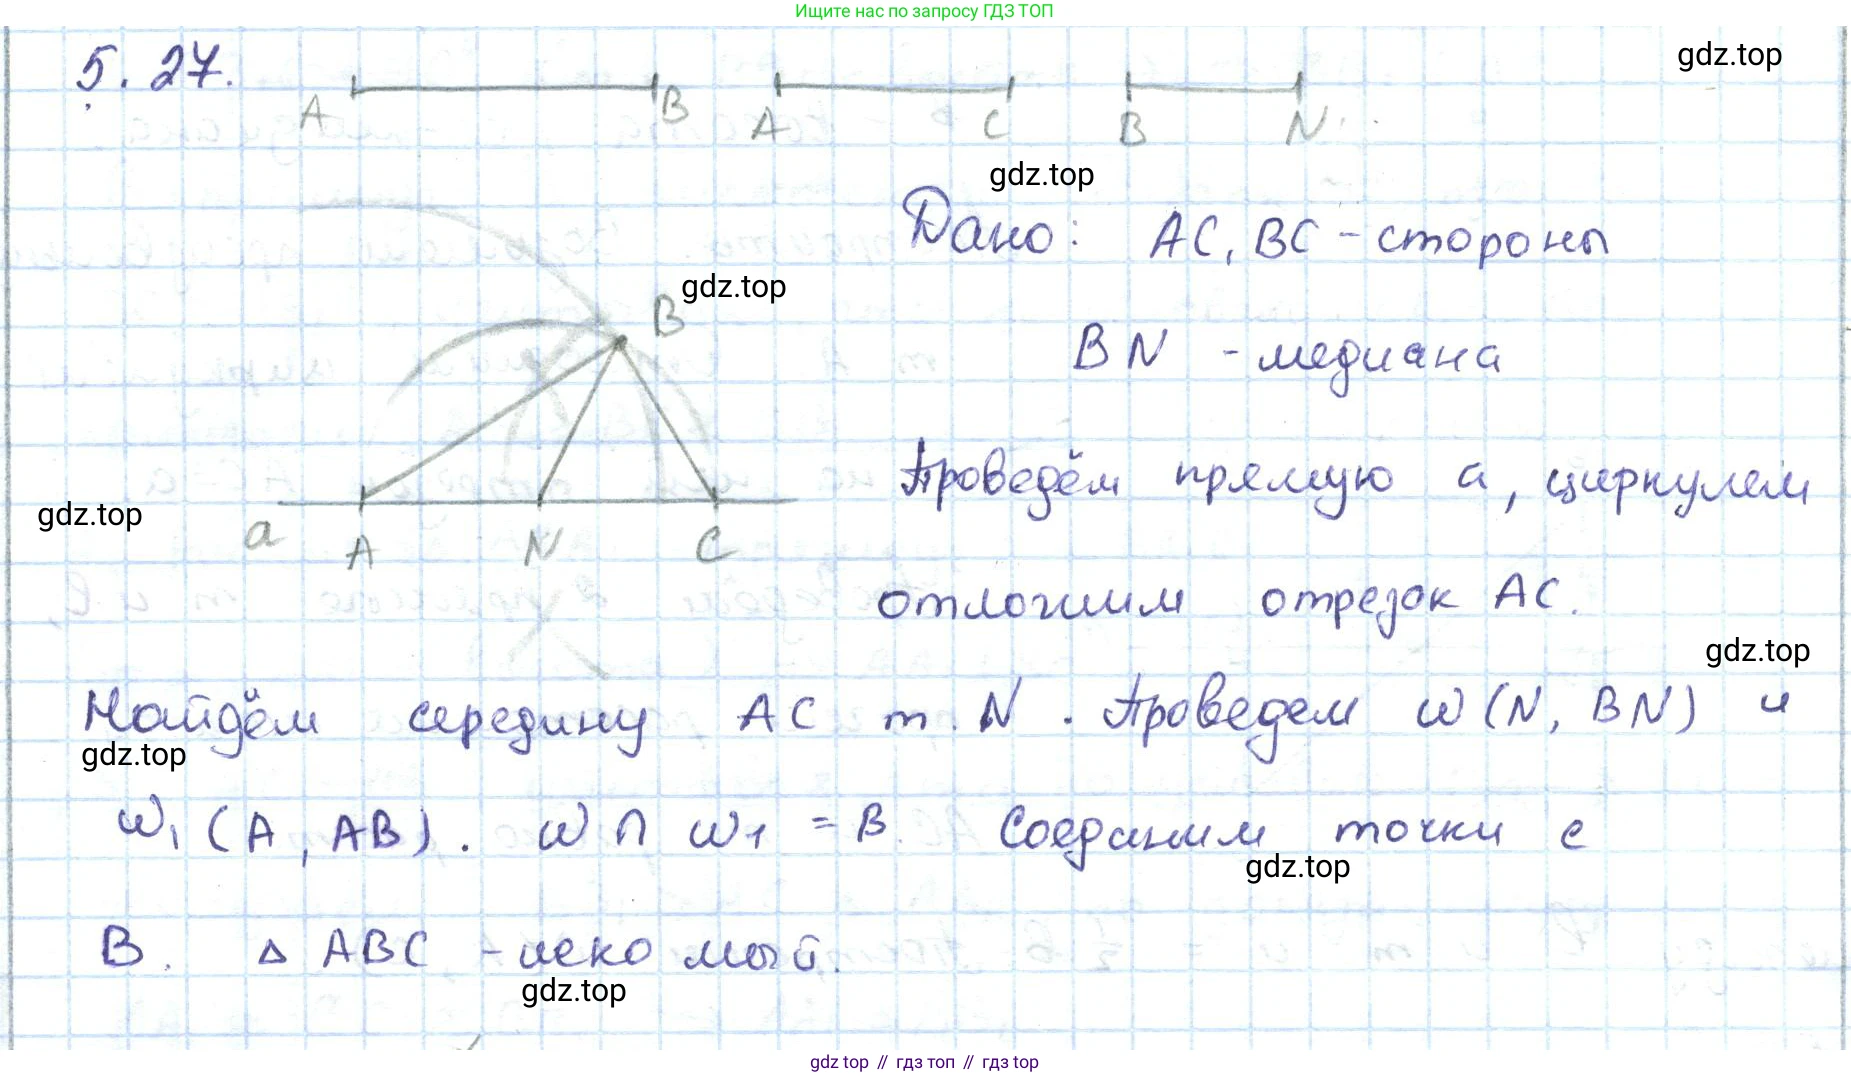 Ищите нас по запросу ГДЗ ТОП
5. 27.
gdz.top
A B A C B N
gdz.top
Дано: AC, BC - стороны
B gdz.top
BN - медиана
Проведём прямую a, циркулем
gdz.top
a A N C
отложим отрезок AC.
gdz.top
Найдём середину AC т. N. Проведем ω (N, BN) и
gdz.top
ω₁ (A, AB). ω ∩ ω1 = B. Соединим точки с
gdz.top
B. Δ ABC - искомый.
gdz.top
gdz top // гдз топ // гдз top